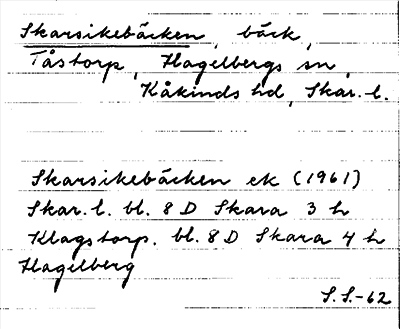 Skarsikebäcken, bäck,
Tåstorp, Hagelbergs sn,
Kåkinds hd, Skar. l.
Skarsikebäcken ek (1961)
Skar. l. bl. 8 D Skara 3 h
Klagstorp. bl. 8 D Skara 4 h
Hagelberg
S.S.-62